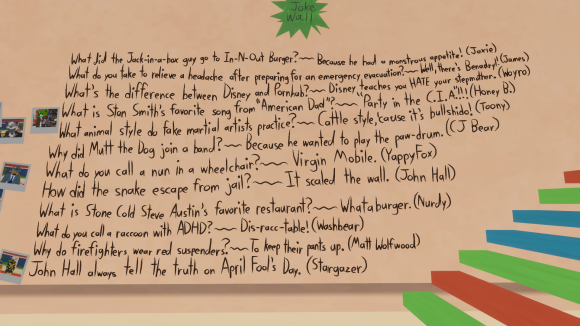 Joke
Wall
What did the Jack-in-a-box guy go to In-N-Out Burger?~~ Because he had a monstrous appetite! (Jaxie)
What do you take to relieve a headache after preparing for an emergency evacuation?~~ Well, there's Benadryl! (James)
What's the difference between Disney and Pornhub?~~ Disney teaches you HATE your stepmother. (Woyro)
What is Stan Smith's favorite song from "American Dad"?~~ "Party in the C.I.A."!! (Honey B.)
What animal style do fake martial artists practice?~~ Cattle style, 'cause it's bullshido! (Toony)
Why did Mutt the Dog join a band?~~ Because he wanted to play the paw-drum. (CJ Bear)
What do you call a nun in a wheelchair?~~ Virgin Mobile. (YappyFox)
How did the snake escape from jail?~~ It scaled the wall. (John Hall)
What is Stone Cold Steve Austin's favorite restaurant?~~ Whataburger. (Nurdy)
What do you call a raccoon with ADHD?~~ Dis-racc-table! (Washbear)
Why do firefighters wear red suspenders?~~ To keep their pants up. (Matt Wolfwood)
John Hall always tell the truth on April Fool's Day. (Stargazer)